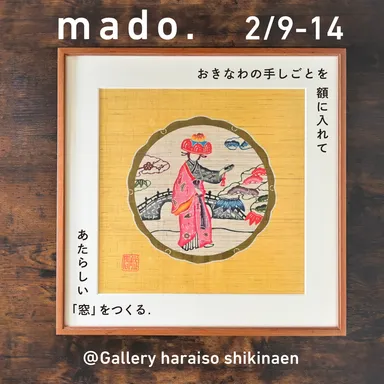 mado. 2/9-14
おきなわの手しごとを
額に入れて
あたらしい
「窓」をつくる.
@Gallery haraiso shikinaen